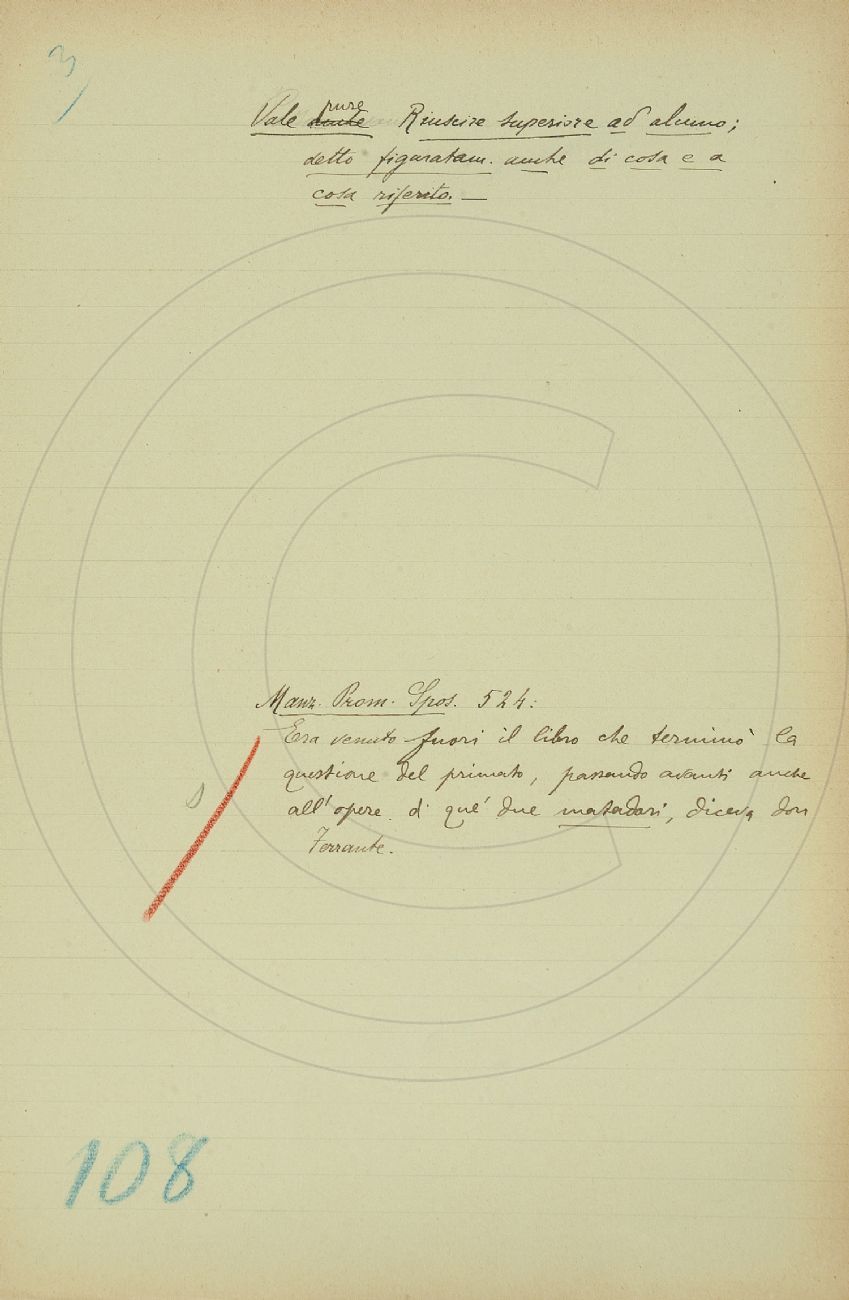 3)
pure
Vale anche Riuscire superiore ad alcuno;
detto figuratam. anche di cosa e a
cosa riferito. —
Manz. Prom. Spos. 524:
Era venuto fuori il libro che terminò la
questione del primato, passando avanti anche
all'opere di que' due matadori, diceva don
Ferrante.
108